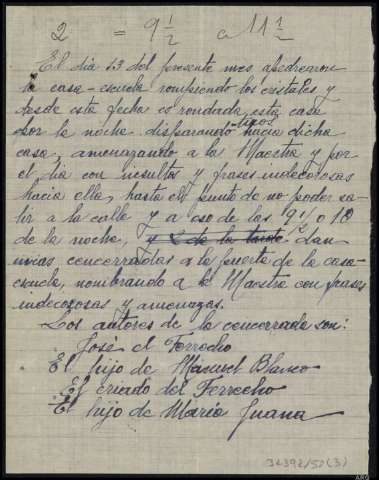 2 = 9 1/2 a 11 1/2
El dia 13 del presente mes apedrearon
la casa-escuela rompiendo los cristales y
desde esta fecha es rondada esta casa
por la noche disparando tiros hacia dicha
casa, amenazando a la Maestra y por
el dia con insultos y frases indecorosas
hacia ella, hasta el punto de no poder sa-
lir a la calle y a eso de las 9 1/2 o 10
de la noche, y 2 de la tarde dan
unas cencerradas a la puerta de la casa-
escuela, nombrando a la Maestra con frases
indecorosas y amenazas.
Los autores de la cencerrada son:
José el Ferrecho
El hijo de Manuel Blanco
El criado del Ferrecho
El hijo de Maria Juana
32392/50(3)